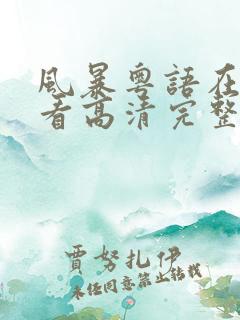 風暴粵語在
看高清完整
賈努扎伊
未经同意禁止转载